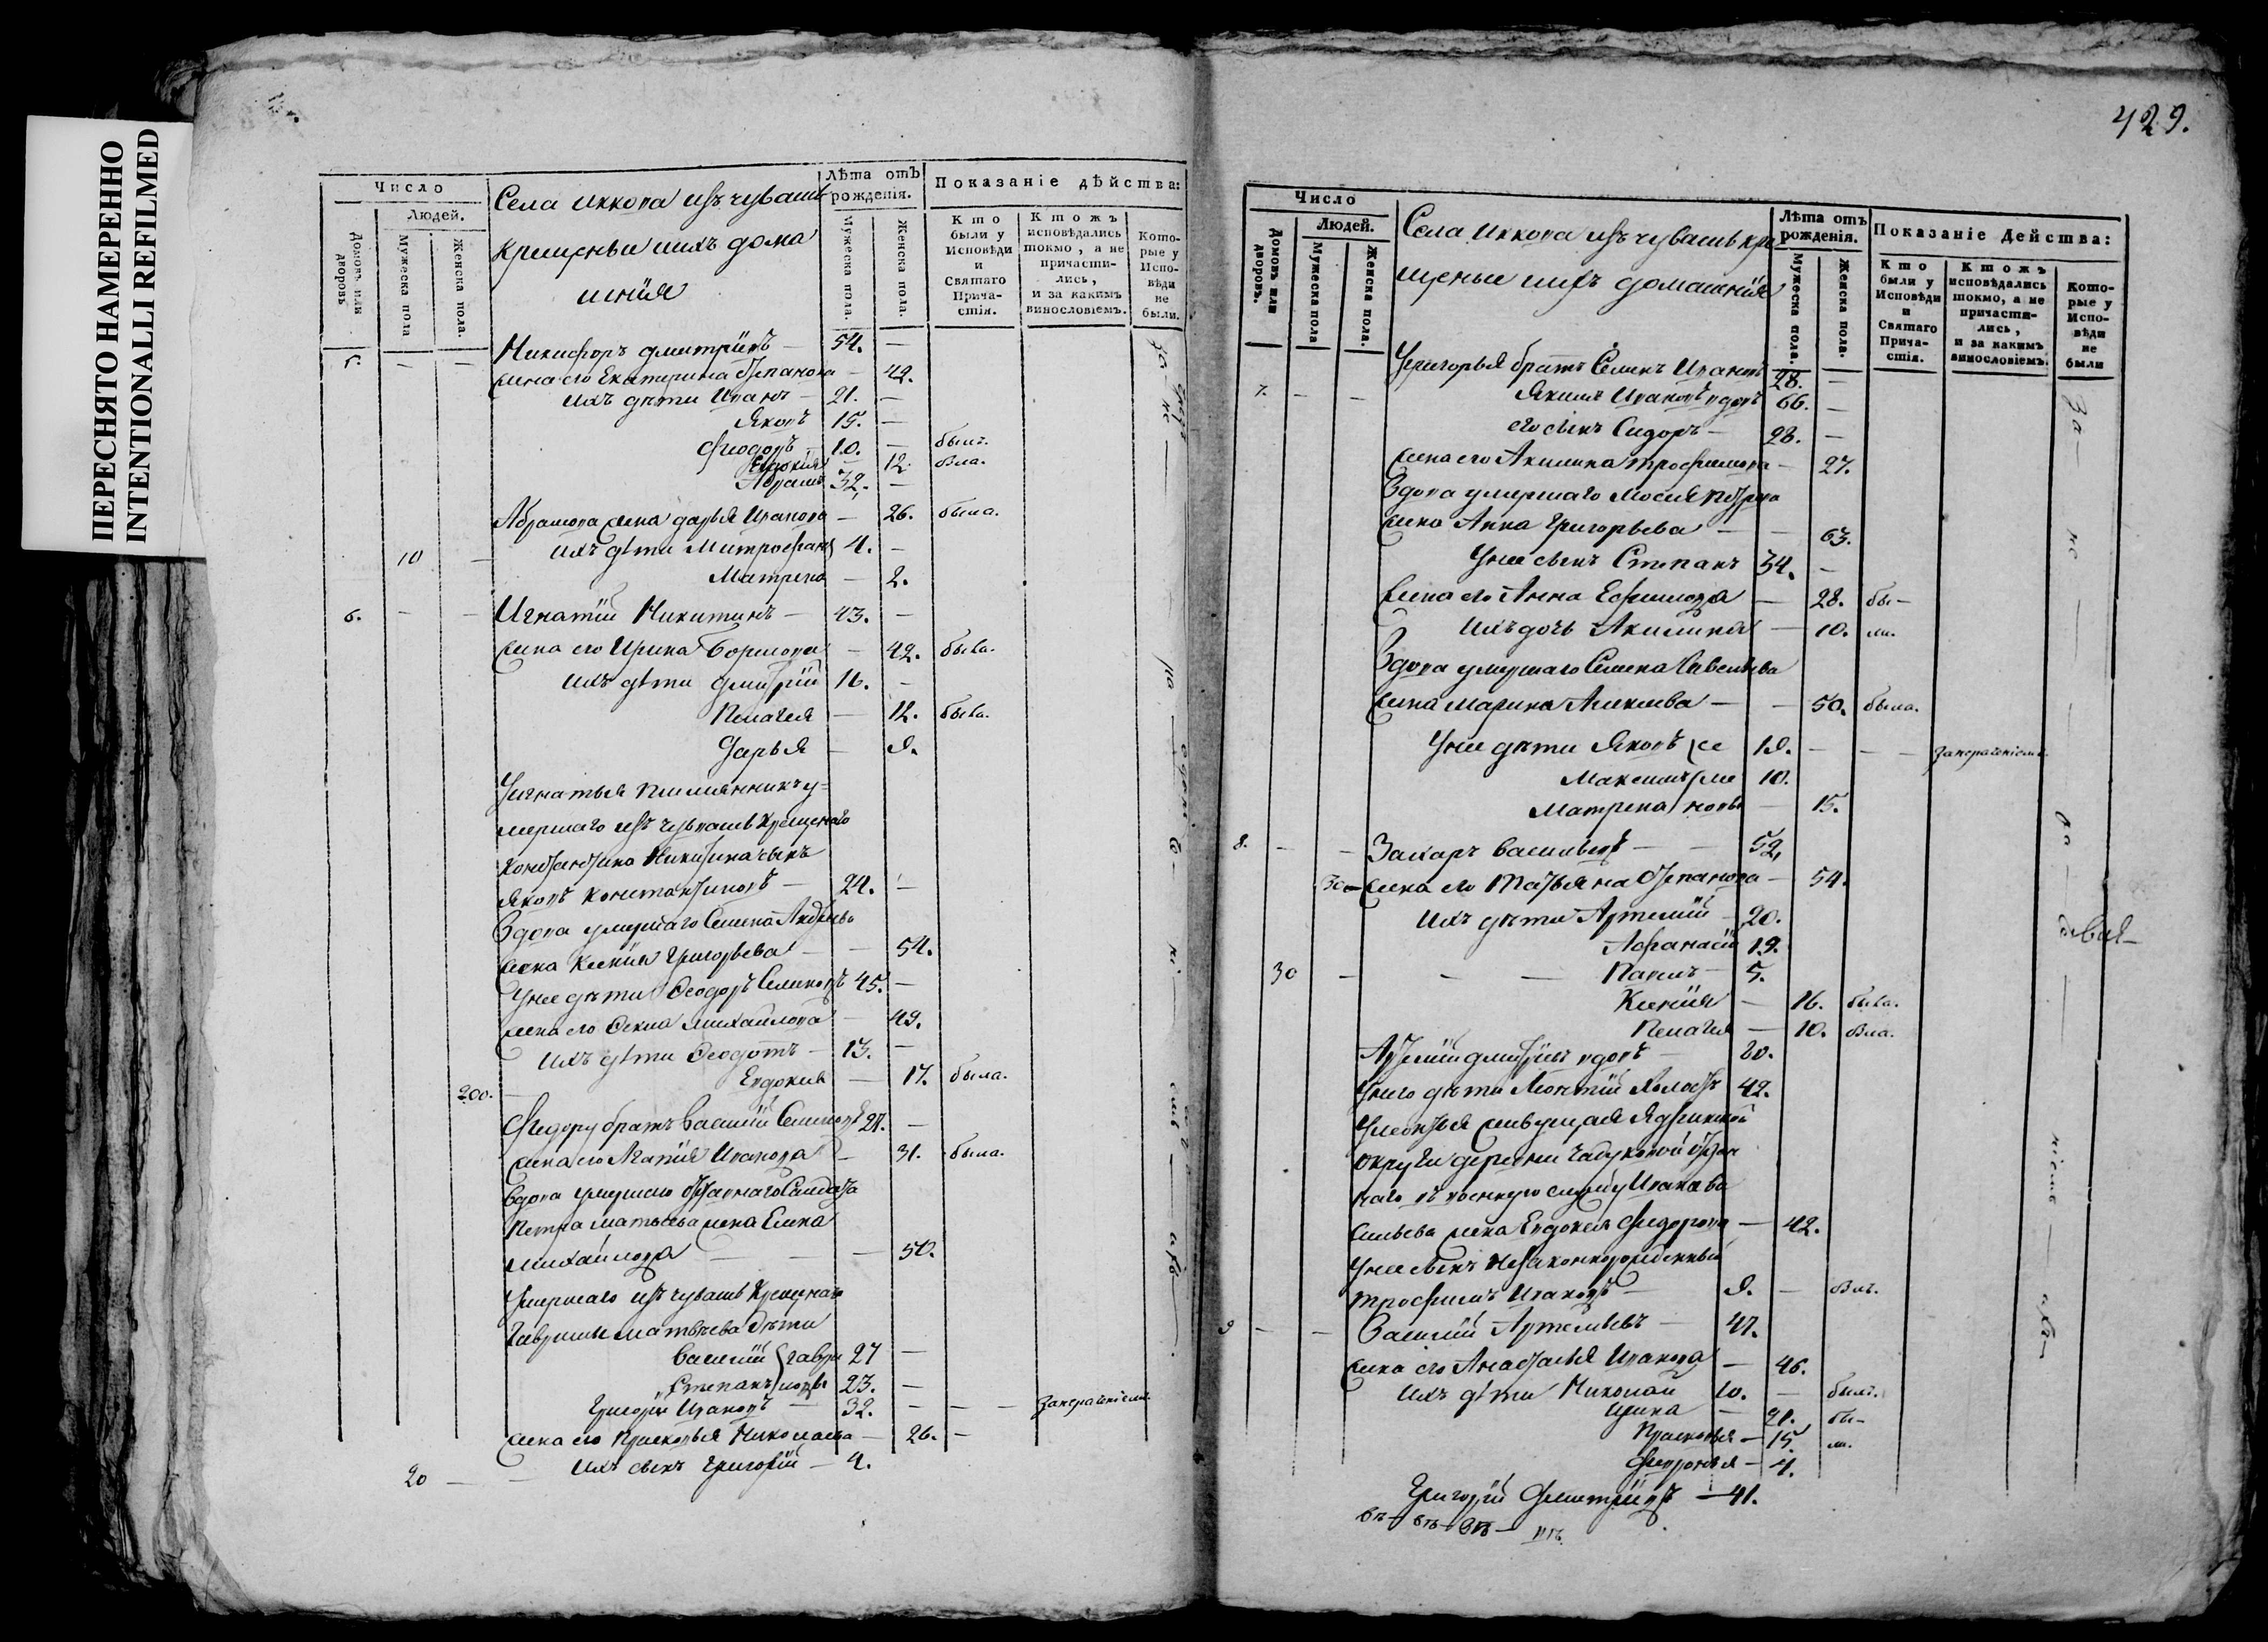 ПЕРЕСНЯТО НАМЕРЕННО
INTENTIONALLI REFILMED
Число
Людей.
Домовъ или дворовъ
Мужеска пола
Женска пола.
Села Иккова изъ чувашъ
крещены и ихъ дома
шнія
Лѣта отъ рожденія.
Мужеска пола.
Женска пола.
Показаніе дѣйства:
Кто были у Исповѣди и Святаго Прича-стія.
Ктожъ исповѣдались токмо, а не причасти-лись, и за какимъ винословіемъ.
Кото-рые у Испо-вѣди не были.
5. — — Никифоръ Дмитріевъ — 54. —
жена его Екатерина Степанова — 42.
ихъ дѣти Иванъ — 21. —
Яковъ 15. —
Феодоръ — 10. — былъ.
Евдокія — 12. бла.
Абрамъ 32. —
Абрамова жена Дарья Иванова — 26. была.
10 — ихъ дѣти Митрофанъ 4. —
Матрена — 2.
6. — — Игнатій Никитинъ — 43. —
жена его Ирина — 42. была.
ихъ дѣти Дмитрій 16. —
Пелагея — 12. была.
Дарья — 9.
У Игнатья племянникъ у=
мершаго изъ чувашъ крещенаго
Константина Никитина сынъ
Яковъ Константиновъ — 24. —
Вдова умершаго Семена Андреева
жена Ксенія Григорьева — 54.
У нее дѣти Феодоръ Семеновъ 45. —
жена его Фекла Михайлова — 49.
ихъ дѣти Феодотъ — 13. —
200. — Евдокия — 17. была.
Федору братъ Василій Семеновъ 27. —
жена его Агапія Иванова — 31. была.
Вдова умершаго отставнаго Солдата
Петра Матвеева жена Елена
Михайлова — — 50.
Умершаго изъ чувашъ крещенаго
Гаврилы Матвѣева дѣти
Василій { Гаври 27 —
Степанъ { ловы 23. —
Григорій Ивановъ — 32. — — —
жена его Прасковья Николаева — 26. —
20 — — ихъ сынъ Григорій — 4.
429.
Число
Людей.
Домовъ или дворовъ.
Мужеска пола
Женска пола.
Села Иккова изъ чувашъ кре
щеные ихъ домашнія
Лѣта отъ рожденія.
Мужеска пола.
Женска пола.
Показаніе Действа:
Кто были у Исповѣди и Святаго Прича-стія.
Ктожъ исповѣдались токмо, а не причасти-лись, и за какимъ винословіемъ.
Кото-рые у Испо-вѣди не были
У Григорья братъ Семенъ Ивановъ 28. —
7. — — Якимъ Ивановъ вдовъ 66. —
его сынъ Сидоръ — 28. —
жена его Акилина Трофимова — 27.
Вдова умершаго Мосея Петрова
жена Анна Григорьева — — 63.
У нее сынъ Степанъ 34. —
жена его Анна Ефимова — 28. бы-
ихъ дочь Акилина — 10. ли.
Вдова умершаго Семена Савельева
жена Марина Алексеева — — 50. была.
У нее дѣти Яковъ { Се 19. — — —
Максимъ { ме 10.
Матрена { новы — 15.
8. — — Захаръ Васильевъ — — 52.
30 — жена его Татьяна Степанова — 54.
ихъ дѣти Артемій — 20.
Афанасій 19.
30 — — — Павелъ — 5.
Ксенія — 16. была.
Пелагея — 10. бла.
Артемій Дмитріевъ вдовъ — 80.
У него дѣти Леонтій холостъ 42.
У Леонтья живущая Ядринской
округи деревни
наго въ военную службу Ивана Ва
сильева жена Евдокея Федорова — 42.
У нее сынъ незаконнорожденный
Трофимъ Ивановъ — 9. — былъ.
9 — — Василій Артемьевъ — 47.
жена его Анастасья Иванова — 46.
ихъ дѣти Николай 10. — былъ.
Ирина — 21. бы-
Прасковья — 15. ли.
Февронья — 4.
Григорій Дмитріевъ — 41.